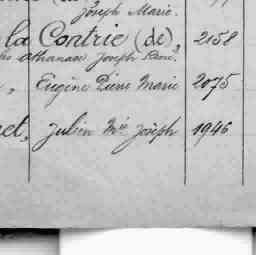 Joseph Marie.
la Contrie (de), 2158
Athanase Joseph René.
" Eugène Pierre Marie 2075
et, Julien Mie Joseph 1946